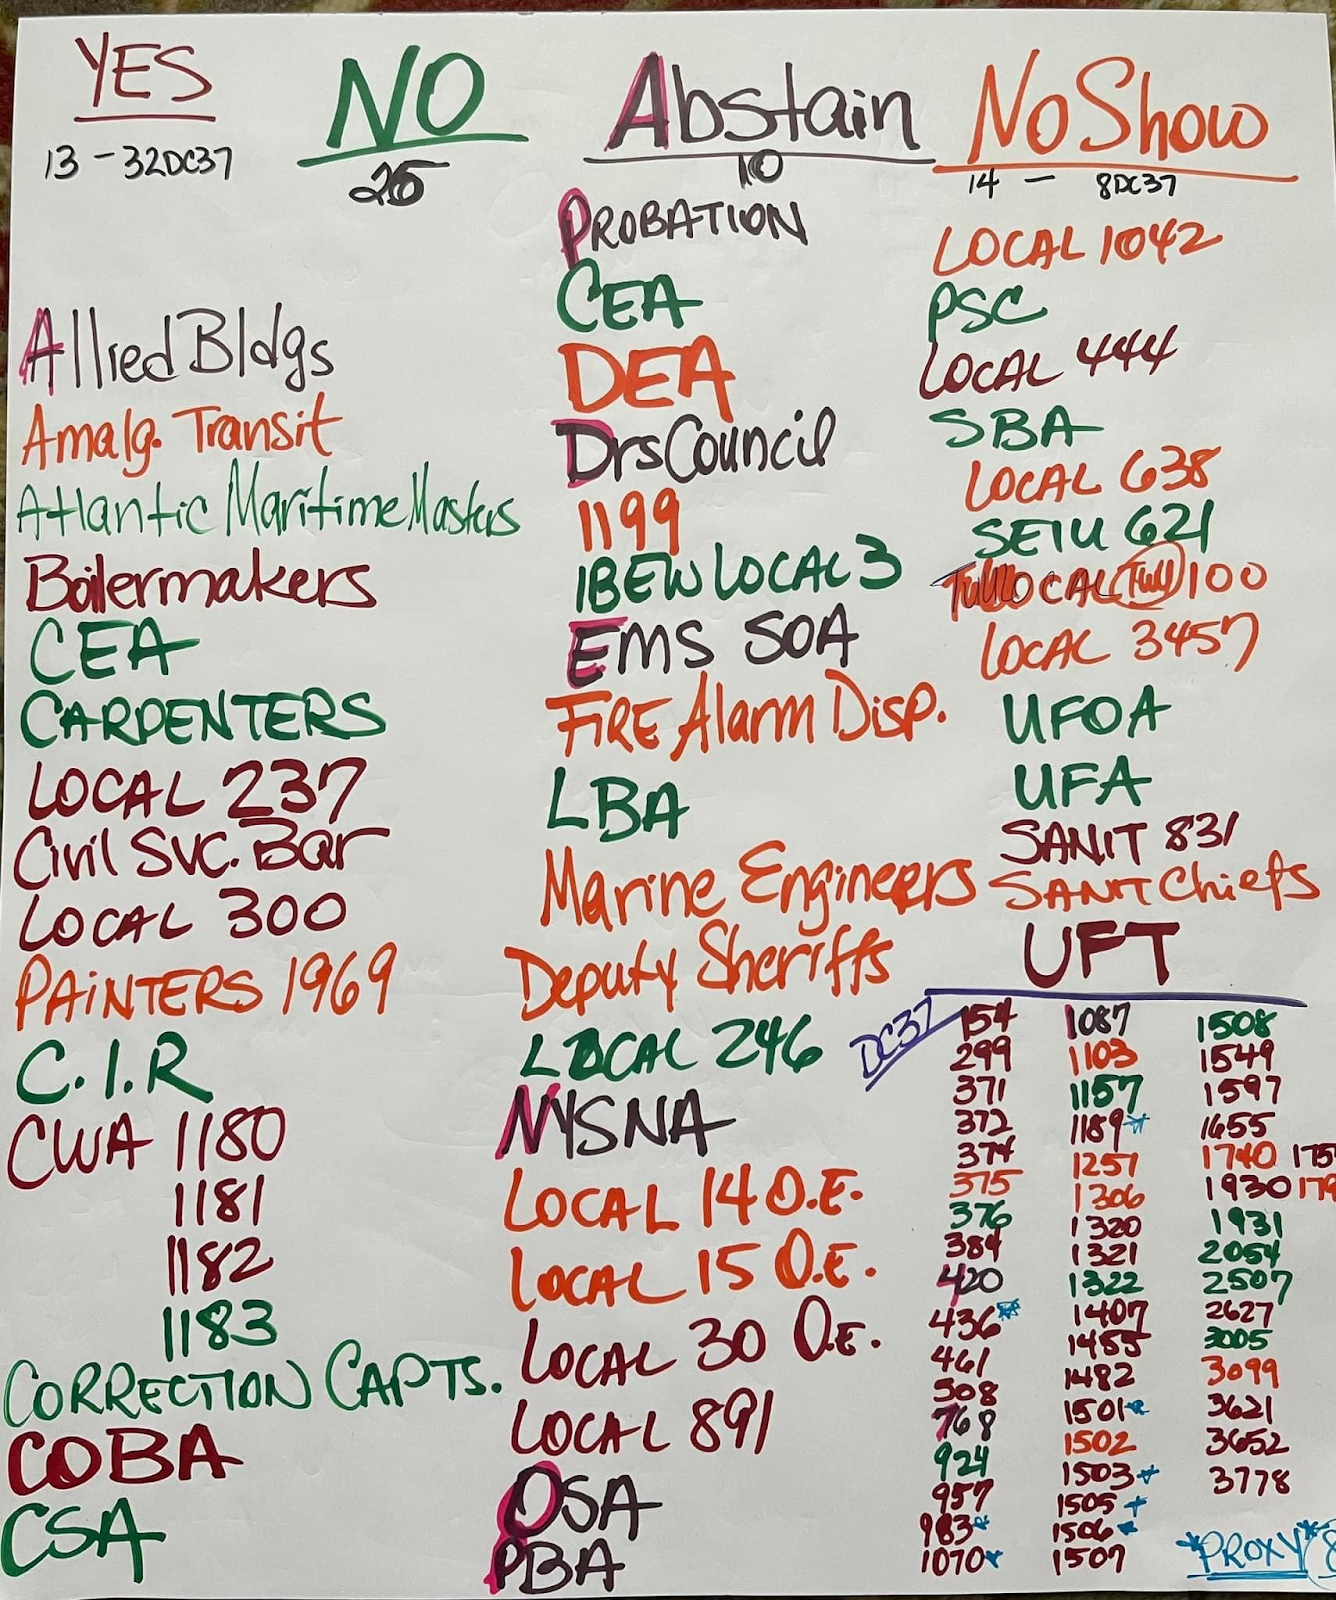 YES
13 - 32DC37
NO
25
Abstain
10
No Show
14 - 8DC37
Allied Bldgs
Amalg. Transit
Atlantic Maritime Masters
Boilermakers
CEA
CARPENTERS
LOCAL 237
Civil Svc. Bar
LOCAL 300
PAINTERS 1969
C.I.R
CWA 1180
1181
1182
1183
CORRECTION CAPTS.
COBA
CSA
PROBATION
CEA
DEA
Drs Council
1199
IBEW LOCAL 3
EMS SOA
FIRE Alarm Disp.
LBA
Marine Engineers
Deputy Sheriffs
LOCAL 246
NYSNA
LOCAL 14 O.E.
LOCAL 15 O.E.
LOCAL 30 O.E.
LOCAL 891
OSA
PBA
LOCAL 1042
PSC
LOCAL 444
SBA
LOCAL 638
SEIU 621
LOCAL TWU 100
LOCAL 3457
UFOA
UFA
SANIT 831
SANIT Chiefs
UFT
DC37
154
299
371
372
374
375
376
384
420
436*
461
508
768
924
957
983*
1070*
1087
1103
1157
1189*
1257
1306
1320
1321
1322
1407
1455
1482
1501*
1502
1503*
1505*
1506*
1507
1508
1549
1597
1655
1740
1930
1931
2054
2507
2627
3005
3099
3621
3652
3778
*PROXY*